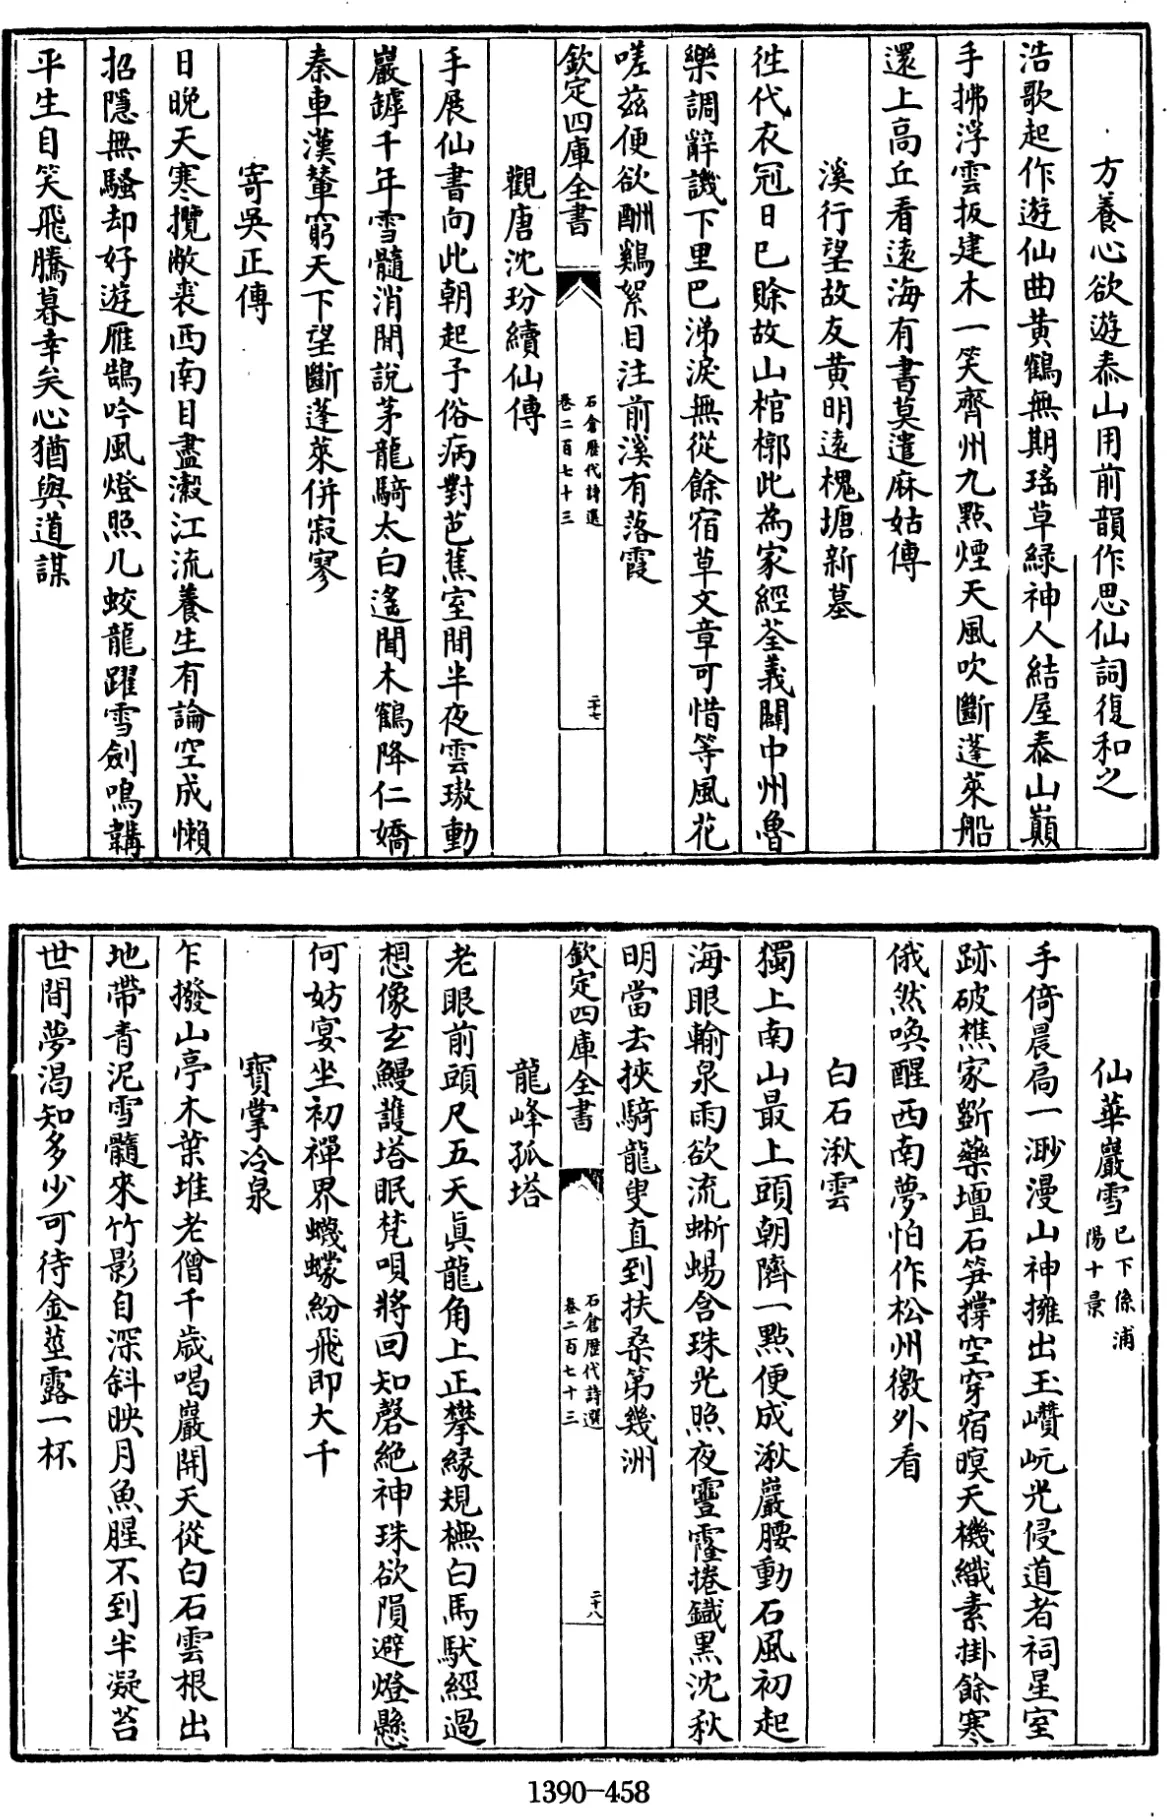 方養心欲遊泰山用前韻作思仙詞復和之
浩歌起作遊仙曲黄鶴無期瑶草緑神人結屋泰山巔
手拂浮雲扳建木一笑齊州九㸃煙天風吹斷蓬萊船
還上高丘看遠海有書莫遣麻姑傳
溪行望故友黄明遠槐塘新墓
徃代衣冠日已賖故山棺槨此為家經荃義闢中州魯
樂調辭譏下里巴涕淚無從餘宿草文章可惜等風花
嗟兹便欲酬鷄絮目注前溪有落霞
欽定四庫全書
石倉歴代詩選
卷二百七十三
二十七
觀唐沈玢續仙傳
手展仙書向此朝起予俗病對芭蕉室間半夜雲璈動
巖罅千年雪髓消開說茅龍騎太白遙聞木鶴降仁嬌
秦車漢輦窮天下望斷蓬萊併寂寥
寄吳正傳
日晩天寒攬敝裘西南目盡瀫江流養生有論空成懶
招隱無騷却好遊雁鵠吟風燈照几蛟龍躍雪劍鳴鞲
平生自笑飛騰暮幸矣心猶與道謀
仙華巖雪已下係浦陽十景
手倚晨扃一渺漫山神擁出玉巑岏光侵道者祠星室
跡破樵家斲藥壇石笋撐空穿宿暝天機織素掛餘寒
俄然喚醒西南夢怕作松州徼外看
白石湫雲
獨上南山最上頭朝隮一㸃便成湫巖腰動石風初起
海眼輸泉雨欲流蜥蜴含珠光照夜靈霳捲鐵黒沈秋
明當去挾騎龍叟直到扶桑第幾洲
欽定四庫全書
石倉歴代詩選
卷二百七十三
二十八
龍峰孤塔
老眼前頭尺五天眞龍角上正攀縁規橅白馬馱經過
想像玄鰻護塔眠梵唄將回知磬絶神珠欲隕避燈懸
何妨宴坐初禪界蠛蠓紛飛即大千
寳掌冷泉
乍撥山亭木葉堆老僧千歳喝巖開天從白石雲根出
地帶青泥雪髓來竹影自深斜映月魚腥不到半凝苔
世間夢渴知多少可待金莖露一杯
1390-458